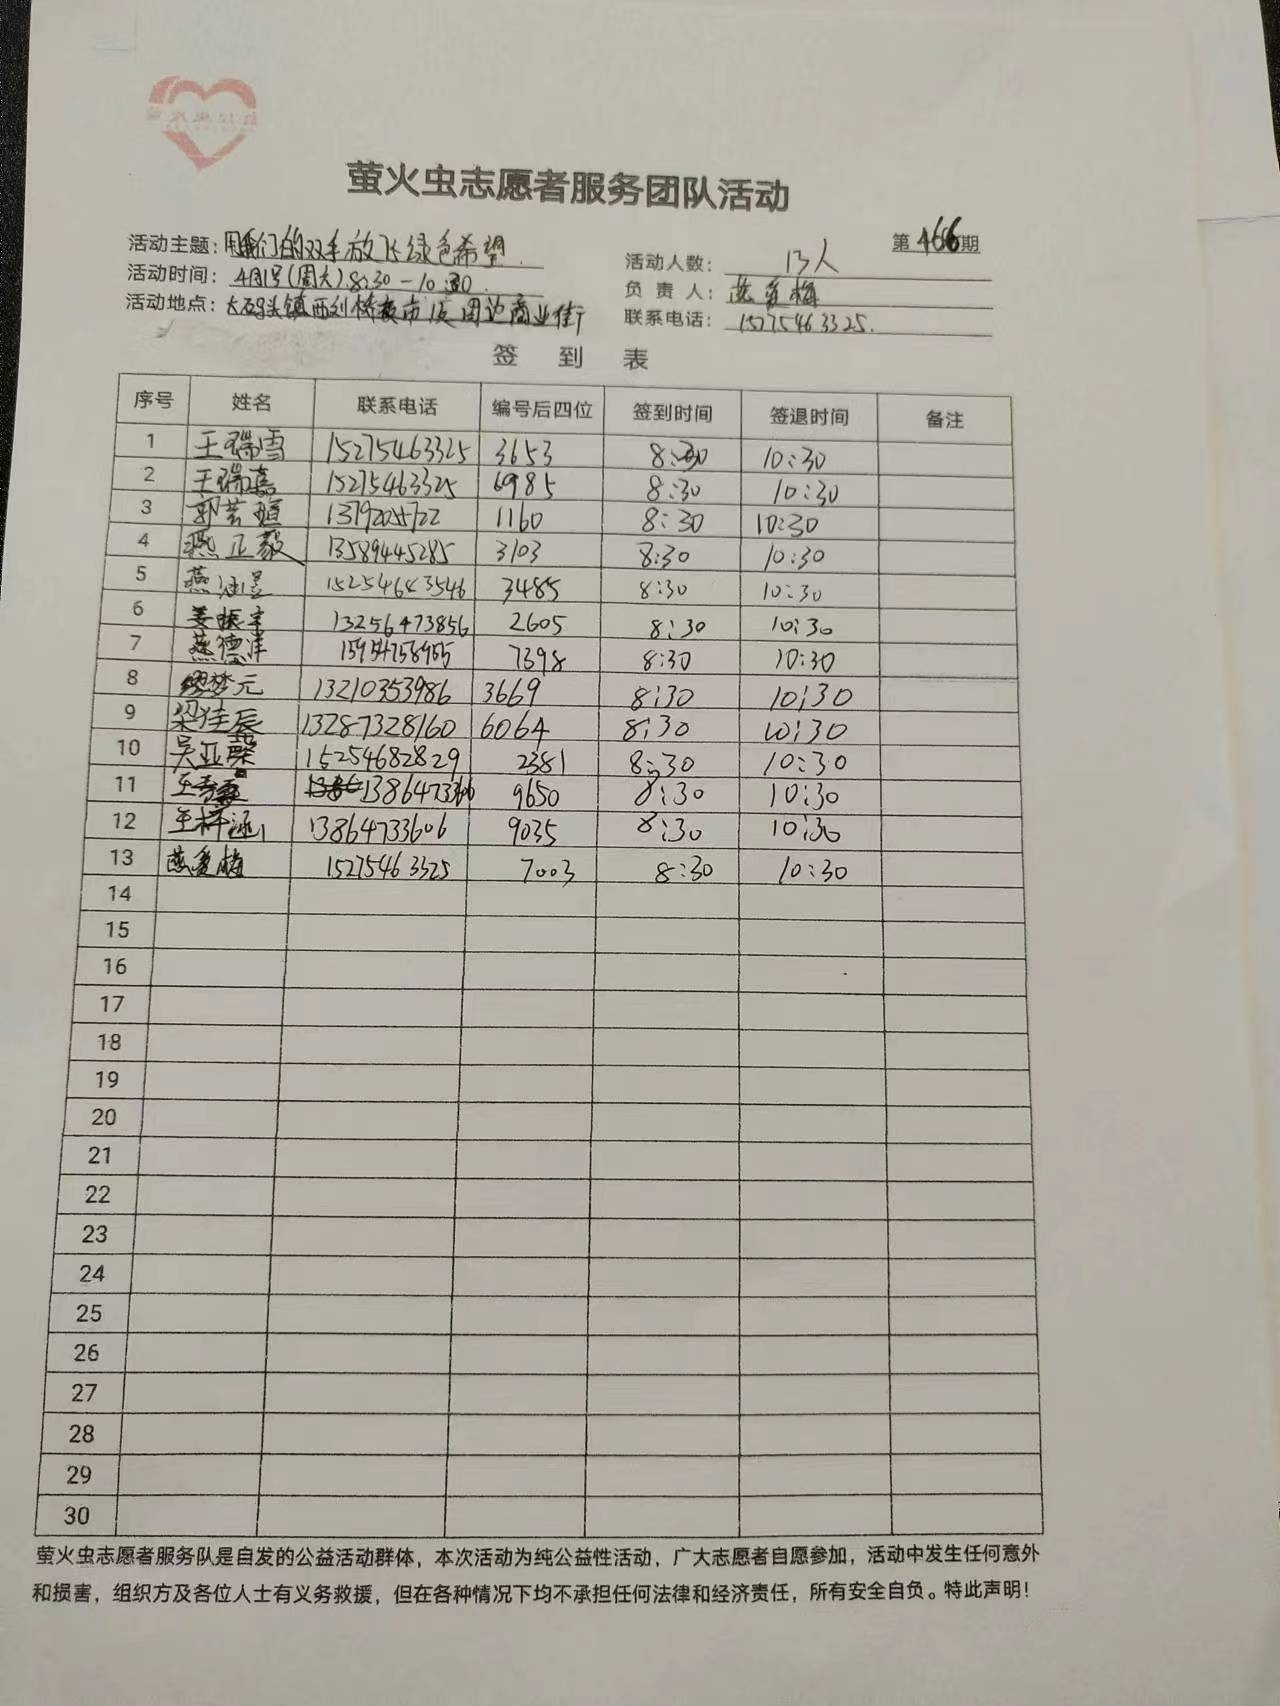 萤火虫志愿者服务团队活动
第466期
活动主题：用我们的双手放飞绿色希望.
活动人数：13人
活动时间：4月1号(周六).8:30-10:30.
负责人：燕爱梅
活动地点：大码头镇西刘桥夜市及周边商业街
联系电话：15275463325.
签到表
序号 姓名 联系电话 编号后四位 签到时间 签退时间 备注
1 王瑞雪 15275463325 3653 8:30 10:30
2 王瑞嘉 15275463325 6985 8:30 10:30
3 郭芸 1160 8:30 10:30
4 燕正毅 13589445285 3103 8:30 10:30
5 燕涵昱 15254643546 3485 8:30 10:30
6 姜振宇 13256473856 2605 8:30 10:30
7 燕德洋 7398 8:30 10:30
8 缪梦元 13210353986 3669 8:30 10:30
9 梁佳辰 13287328160 6064 8:30 10:30
10 吴亚 15254682829 2381 8:30 10:30
11 9650 8:30 10:30
12 王梓涵 13864733606 9035 8:30 10:30
13 燕爱梅 15275463325 7003 8:30 10:30
14
15
16
17
18
19
20
21
22
23
24
25
26
27
28
29
30
萤火虫志愿者服务队是自发的公益活动群体，本次活动为纯公益性活动，广大志愿者自愿参加，活动中发生任何意外
和损害，组织方及各位人士有义务救援，但在各种情况下均不承担任何法律和经济责任，所有安全自负。特此声明！